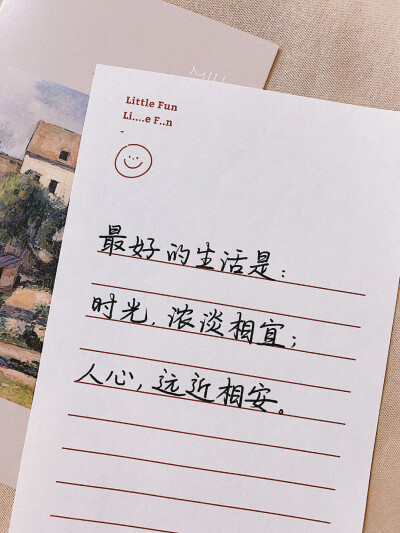 Little Fun
Li....e F..n
最好的生活是：
时光，浓淡相宜；
人心，远近相安。